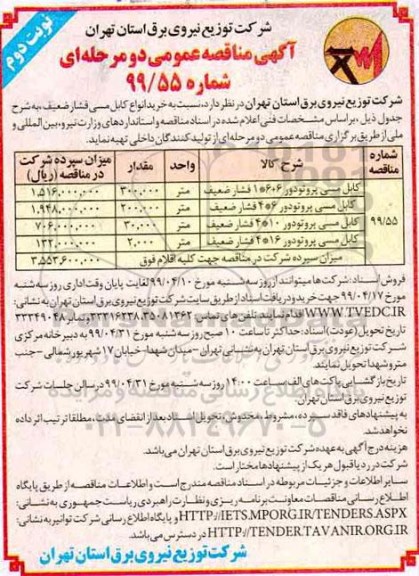 نوبت دوم
شرکت توزیع نیروی برق استان تهران
آگهی مناقصه عمومی دو مرحله‌ای
شماره ۹۹/۵۵
شرکت توزیع نیروی برق استان تهران در نظر دارد، نسبت به خرید انواع کابل مسی فشار ضعیف، به شرح
جدول ذیل، براساس مشخصات فنی اعلام شده در اسناد مناقصه و استانداردهای وزارت نیرو، بین المللی و
ملی از طریق برگزاری مناقصه عمومی دو مرحله‌ای از تولیدکنندگان داخلی تهیه نماید.
شماره مناقصه شرح کالا واحد مقدار میزان سپرده شرکت در مناقصه (ریال)
۹۹/۵۵
کابل مسی پروتودور ۶۰۶*۱ فشار ضعیف متر ۳۰۰,۰۰۰ ۱,۵۱۶,۰۰۰,۰۰۰
کابل مسی پروتودور ۶*۴ فشار ضعیف متر ۲۰۰,۰۰۰ ۱,۹۴۸,۰۰۰,۰۰۰
کابل مسی پروتودور ۱۰*۴ فشار ضعیف متر ۳۰,۰۰۰ ۷۰۶,۰۰۰,۰۰۰
کابل مسی پروتودور ۱۶*۴ فشار ضعیف متر ۲,۰۰۰ ۱۳۲,۰۰۰,۰۰۰
میزان سپرده شرکت در مناقصه جهت کلیه اقلام فوق ۳,۵۵۳,۶۰۰,۰۰۰
فروش اسناد: شرکت‌ها میتوانند از روز سه شنبه مورخ ۹۹/۰۴/۱۰ لغایت پایان وقت اداری روز سه شنبه
مورخ ۹۹/۰۴/۱۷ جهت خرید و دریافت اسناد از طریق سایت شرکت توزیع نیروی برق استان تهران به نشانی:
WWW.TVEDC.IR اقدام نمایند. تلفن‌های تماس: ۳۵۰۸۱۳۶۲ - ۳۳۲۱۶۲۳۸ و نمابر ۳۳۳۴۹۰۴۸
تاریخ تحویل (عودت) اسناد: حداکثر تا ساعت ۱۰ صبح روز سه شنبه مورخ ۹۹/۰۴/۳۱ به دبیرخانه مرکزی
شرکت توزیع نیروی برق استان تهران به نشانی تهران - میدان شهدا - خیابان ۱۷ شهریور شمالی - جنب
مترو شهدا تحویل نمایند.
تاریخ بازگشایی پاکت‌های الف: ساعت ۱۴:۰۰ روز سه شنبه مورخ ۹۹/۰۴/۳۱ در سالن جلسات شرکت
توزیع نیروی برق استان تهران.
به پیشنهادهای فاقد سپرده، مشروط، مخدوش، تحویل اسناد بعد از انقضای مدت، مطلقا ترتیب اثر داده
نخواهد شد.
هزینه درج آگهی به عهده شرکت توزیع نیروی برق استان تهران می‌باشد.
شرکت در رد یا قبول هر یک از پیشنهادها مختار است.
سایر اطلاعات و جزئیات مربوطه در اسناد مناقصه مندرج است و اطلاعات مناقصه از طریق پایگاه
اطلاع رسانی مناقصات معاونت برنامه ریزی و نظارت راهبردی ریاست جمهوری به نشانی:
HTTP://IETS.MPORG.IR/TENDERS.ASPX و پایگاه اطلاع رسانی شرکت توانیر به نشانی:
HTTP://TENDER.TAVANIR.ORG.IR در دسترس می‌باشد.
شرکت توزیع نیروی برق استان تهران